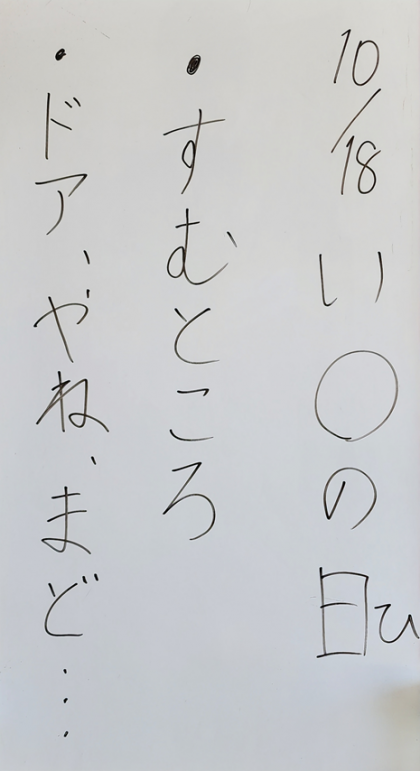 10/18 い○の日ひ
・すむところ
・ドア、やね、まど…